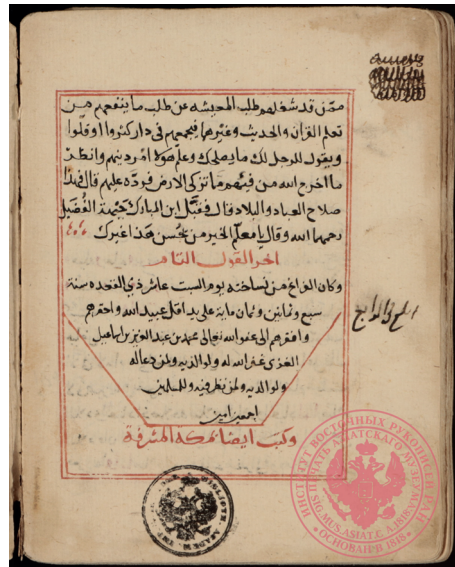 ممّن قد شغلهم طلب المعيشه عن طلب ما ينفعهم من
تعلم القران والحديث وغيرهما فتجمعهم في دار كثروا او قلّوا
ويقول للرجل لك ما يصلحك وعلم هؤلاء امر دينهم وانظر
ما اخرج الله من فيئهم ما تزكى الارض فردّه عليهم قال فهذا
صلاح العباد والبلاد قال فقبّل ابن المبارك جبهة الفُضَيل
رحمهما الله وقال يا معلّم الخير من يحسن هذا غيرك
اخر القول التام
وكان الفراغ من نساخته يوم السبت عاشر ذي القعده سنة
سبع وثمانين وثمان مايه على يد اقل عبيد الله واحقرهم
وافقرهم الى عفو الله تعالى محمد بن عبد العزيز بن اسماعيل
الغزى غفر الله له ولوالديه ولمن دعا له
ولوالديه ولمن نظر فيه وللمسلمين
اجمعين امين
وكتب ايضا بمكة المشرفة
ИНСТИТУТ ВОСТОЧНЫХ РУКОПИСЕЙ РАН
ПЕЧАТЬ АЗИАТСКАГО МУЗЕУМА
SIG. MUS. ASIAT. C.
ОСНОВАН В 1818